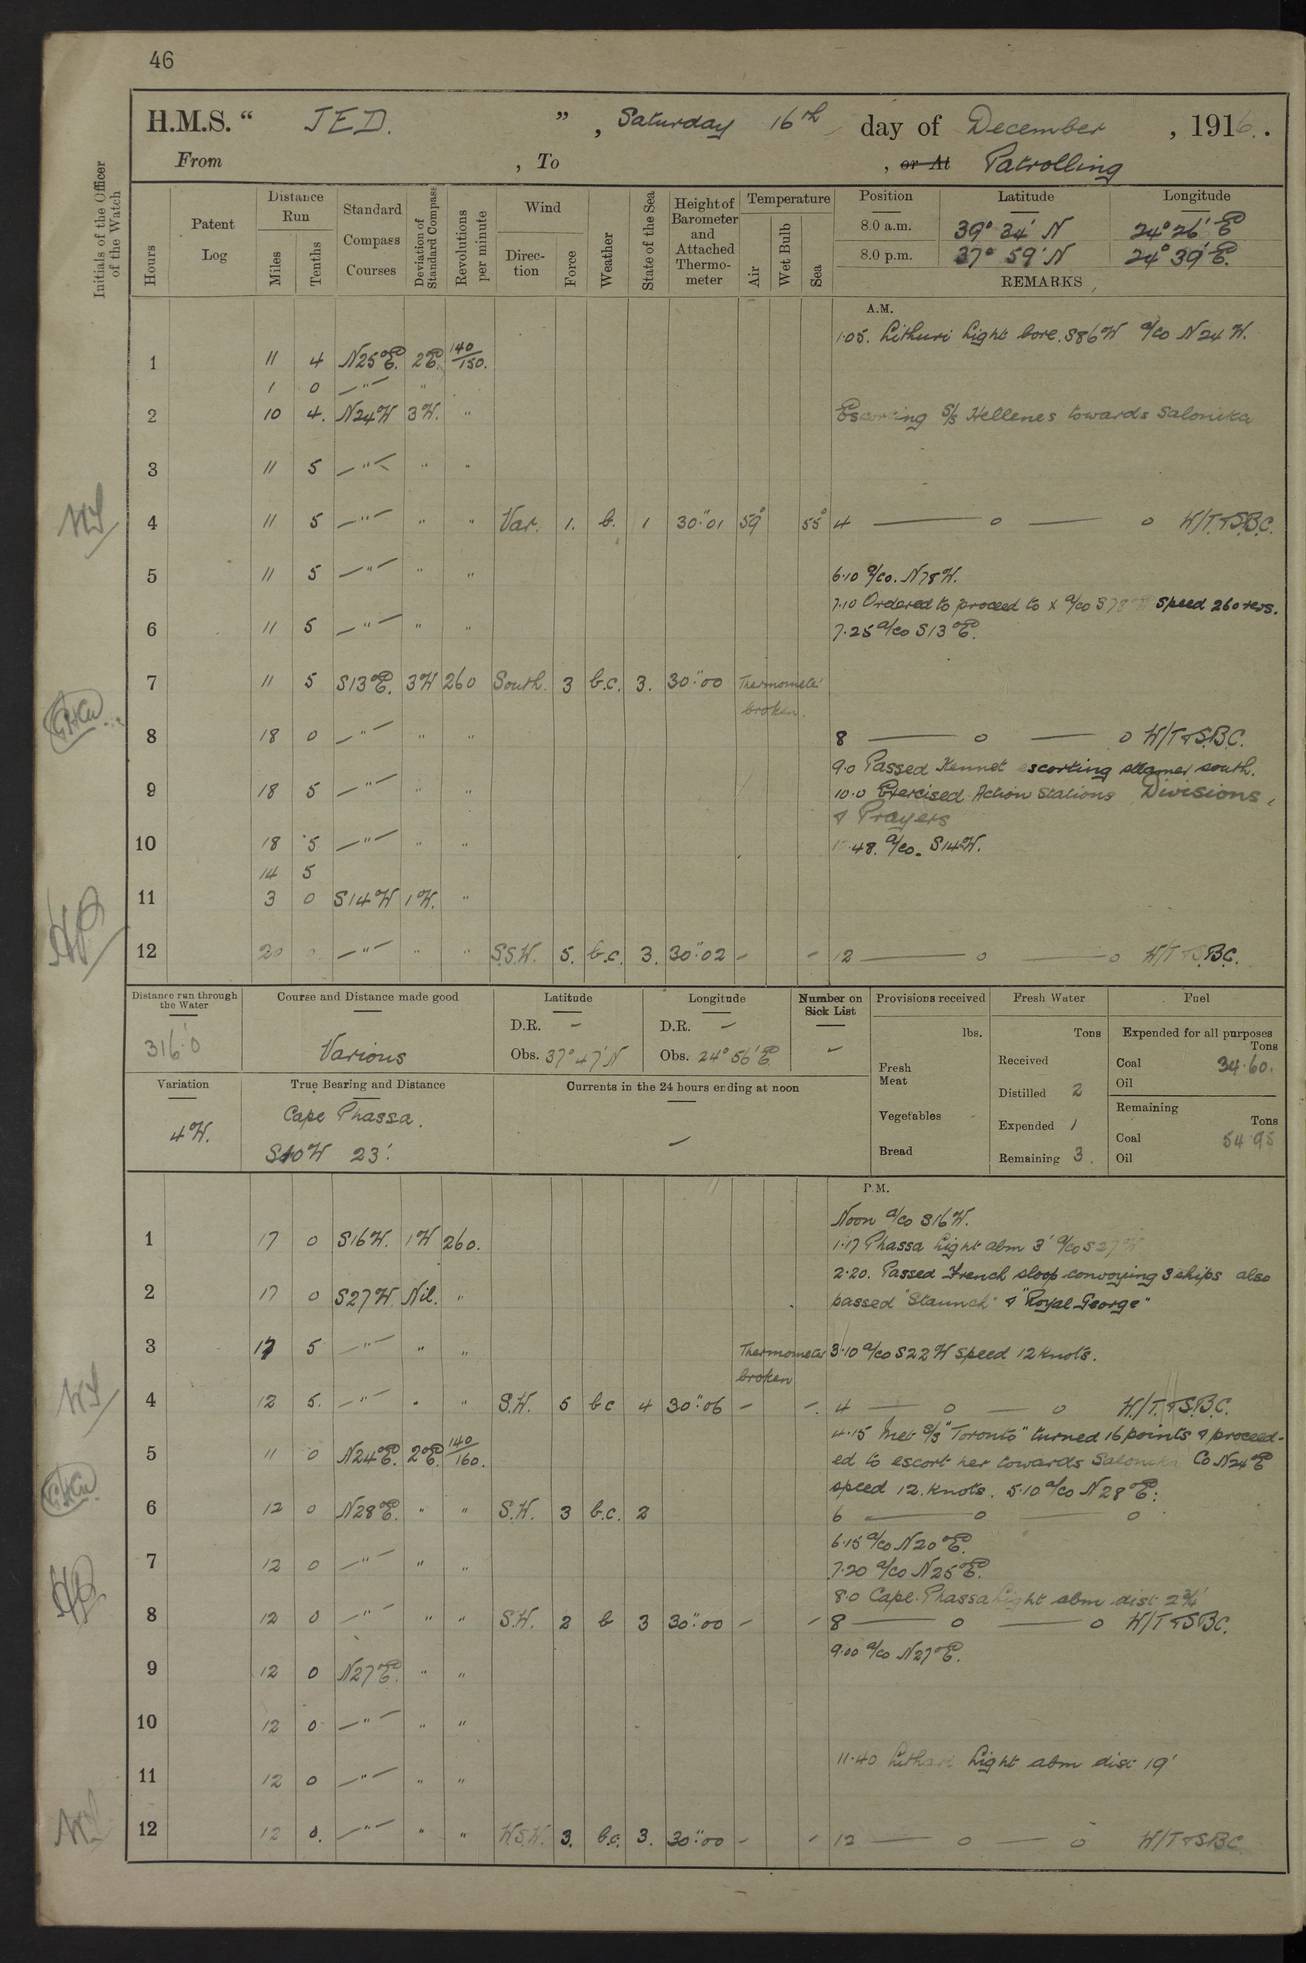 46
H.M.S. " JED. ", Saturday 16th day of December, 1916.
From , To , or At Patrolling
Initials of the Officer of the Watch
Hours
Patent Log
Distance Run
Miles
Tenths
Standard Compass Courses
Deviation of Standard Compass
Revolutions per minute
Wind
Direction
Force
Weather
State of the Sea
Height of Barometer and Attached Thermometer
Temperature
Air
Wet Bulb
Sea
Position Latitude Longitude
8.0 a.m. 39° 34' N 24° 26' E
8.0 p.m. 37° 59' N 24° 39' E.
REMARKS
A.M.
1.05. Lithuri Light bore. S86W a/co N24W.
1 11 4 N25°E. 2E. 140/150.
1 0 —"— "
2 10 4. N24W 3W. " Escorting S/S Hellenes towards Salonika
3 11 5 —"— " "
4 11 5 —"— " " Var. 1. b. 1 30"01 59° 55° 4 — o — o W/T. & S.B.C.
5 11 5 —"— " " 6.10 a/co. N78W.
7.10 Ordered to proceed to x a/co speed 260 revs.
6 11 5 —"— " " 7.25 a/co S13°E.
7 11 5 S13°E. 3W 260 South. 3 b.c. 3. 30"00 Thermometer broken.
8 18 0 —"— " " 8 — o — o W/T & S.B.C.
9.0 Passed Kennet escorting steamer south.
9 18 5 —"— " " 10.0 Exercised Action Stations Divisions,
& Prayers
10 18 5 —"— " " 48. a/co. S14W.
14 5
11 3 0 S14W 1W. "
12 20 0 —"— " " S.S.W. 5. b.c. 3. 30"02 - - 12 — o — o W/T & S.B.C.
Distance run through the Water
316.0
Course and Distance made good
Various
Latitude
D.R. —
Obs. 37° 47' N
Longitude
D.R. —
Obs. 24° 56' E.
Number on Sick List
—
Provisions received
lbs.
Fresh Meat
Vegetables
Bread
Fresh Water
Tons
Received
Distilled 2
Expended 1
Remaining 3.
Fuel
Expended for all purposes
Tons
Coal 34.60.
Oil
Remaining
Tons
Coal 54.95
Oil
Variation
4W.
True Bearing and Distance
Cape Phassa.
S10W 23'.
Currents in the 24 hours ending at noon
—
P.M.
Noon a/co S16W.
1 17 0 S16W. 1W 260. 1.17 Phassa Light abm 3' a/co S27W
2.20. Passed French sloop convoying 3 ships also
2 17 0 S27W. Nil. " passed "Staunch" & "Royal George"
3 17 5 —"— " " Thermometer broken 3.10 a/co S22W speed 12 knots.
4 12 5. —"— " " S.W. 5 bc 4 30"06 - - 4 — o — o W/T. & S.B.C.
4.15 Met S/S "Toronto" turned 16 points & proceed-
5 11 0 N24°E. 2°E. 140/160. ed to escort her towards Salonika Co N24°E
speed 12. knots. 5.10 a/co N28°E.
6 12 0 N28°E. " " S.W. 3 b.c. 2 6 — o — o
6.15 a/co N20°E.
7 12 0 —"— " " 7.20 a/co N25°E.
8.0 Cape Phassa Light abm dist 2¾'
8 12 0 —"— " " S.W. 2 b 3 30"00 - - 8 — o — o W/T & S.B.C.
9.00 a/co N27°E.
9 12 0 N27°E. " "
10 12 0 —"— " "
11.40 Light abm dist 19'
11 12 0 —"— " "
12 12 0. —"— " " W.S.W. 3. b.c. 3. 30"00 - - 12 — o — o W/T & S.B.C.